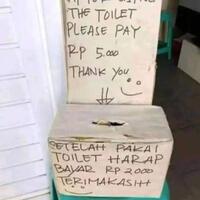 AFTER USING
THE TOILET
PLEASE PAY
RP 5.000
THANK YOU
SETELAH PAKAI
TOILET HARAP
BAYAR RP 2,000
TERIMAKASIH